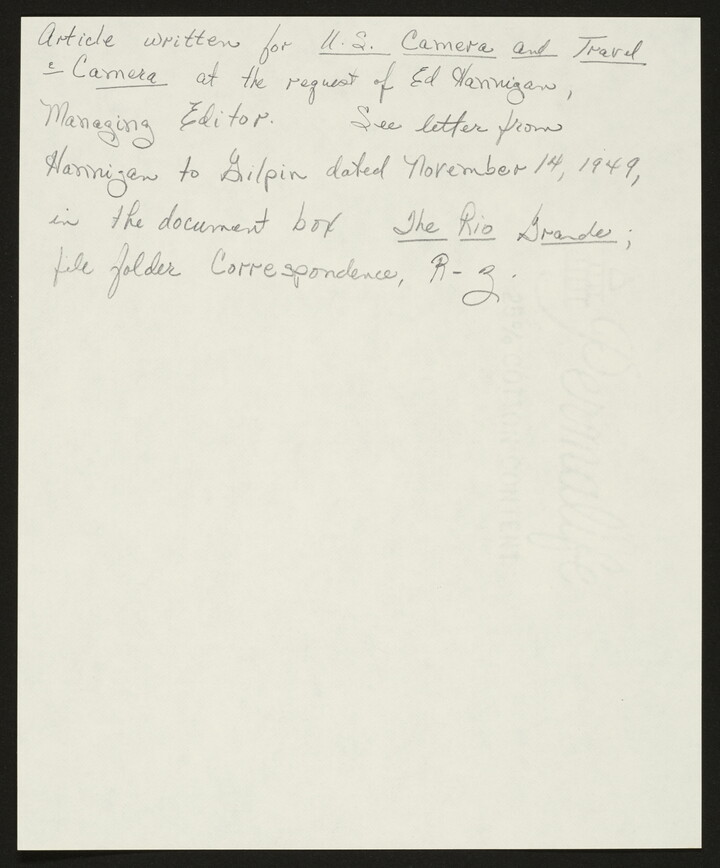 Article written for U.S. Camera and Travel
& Camera at the request of Ed Hannigan,
Managing Editor. See letter from
Hannigan to Gilpin dated November 14, 1949,
in the document box The Rio Grande;
file folder Correspondence, R-Z.
Permalife